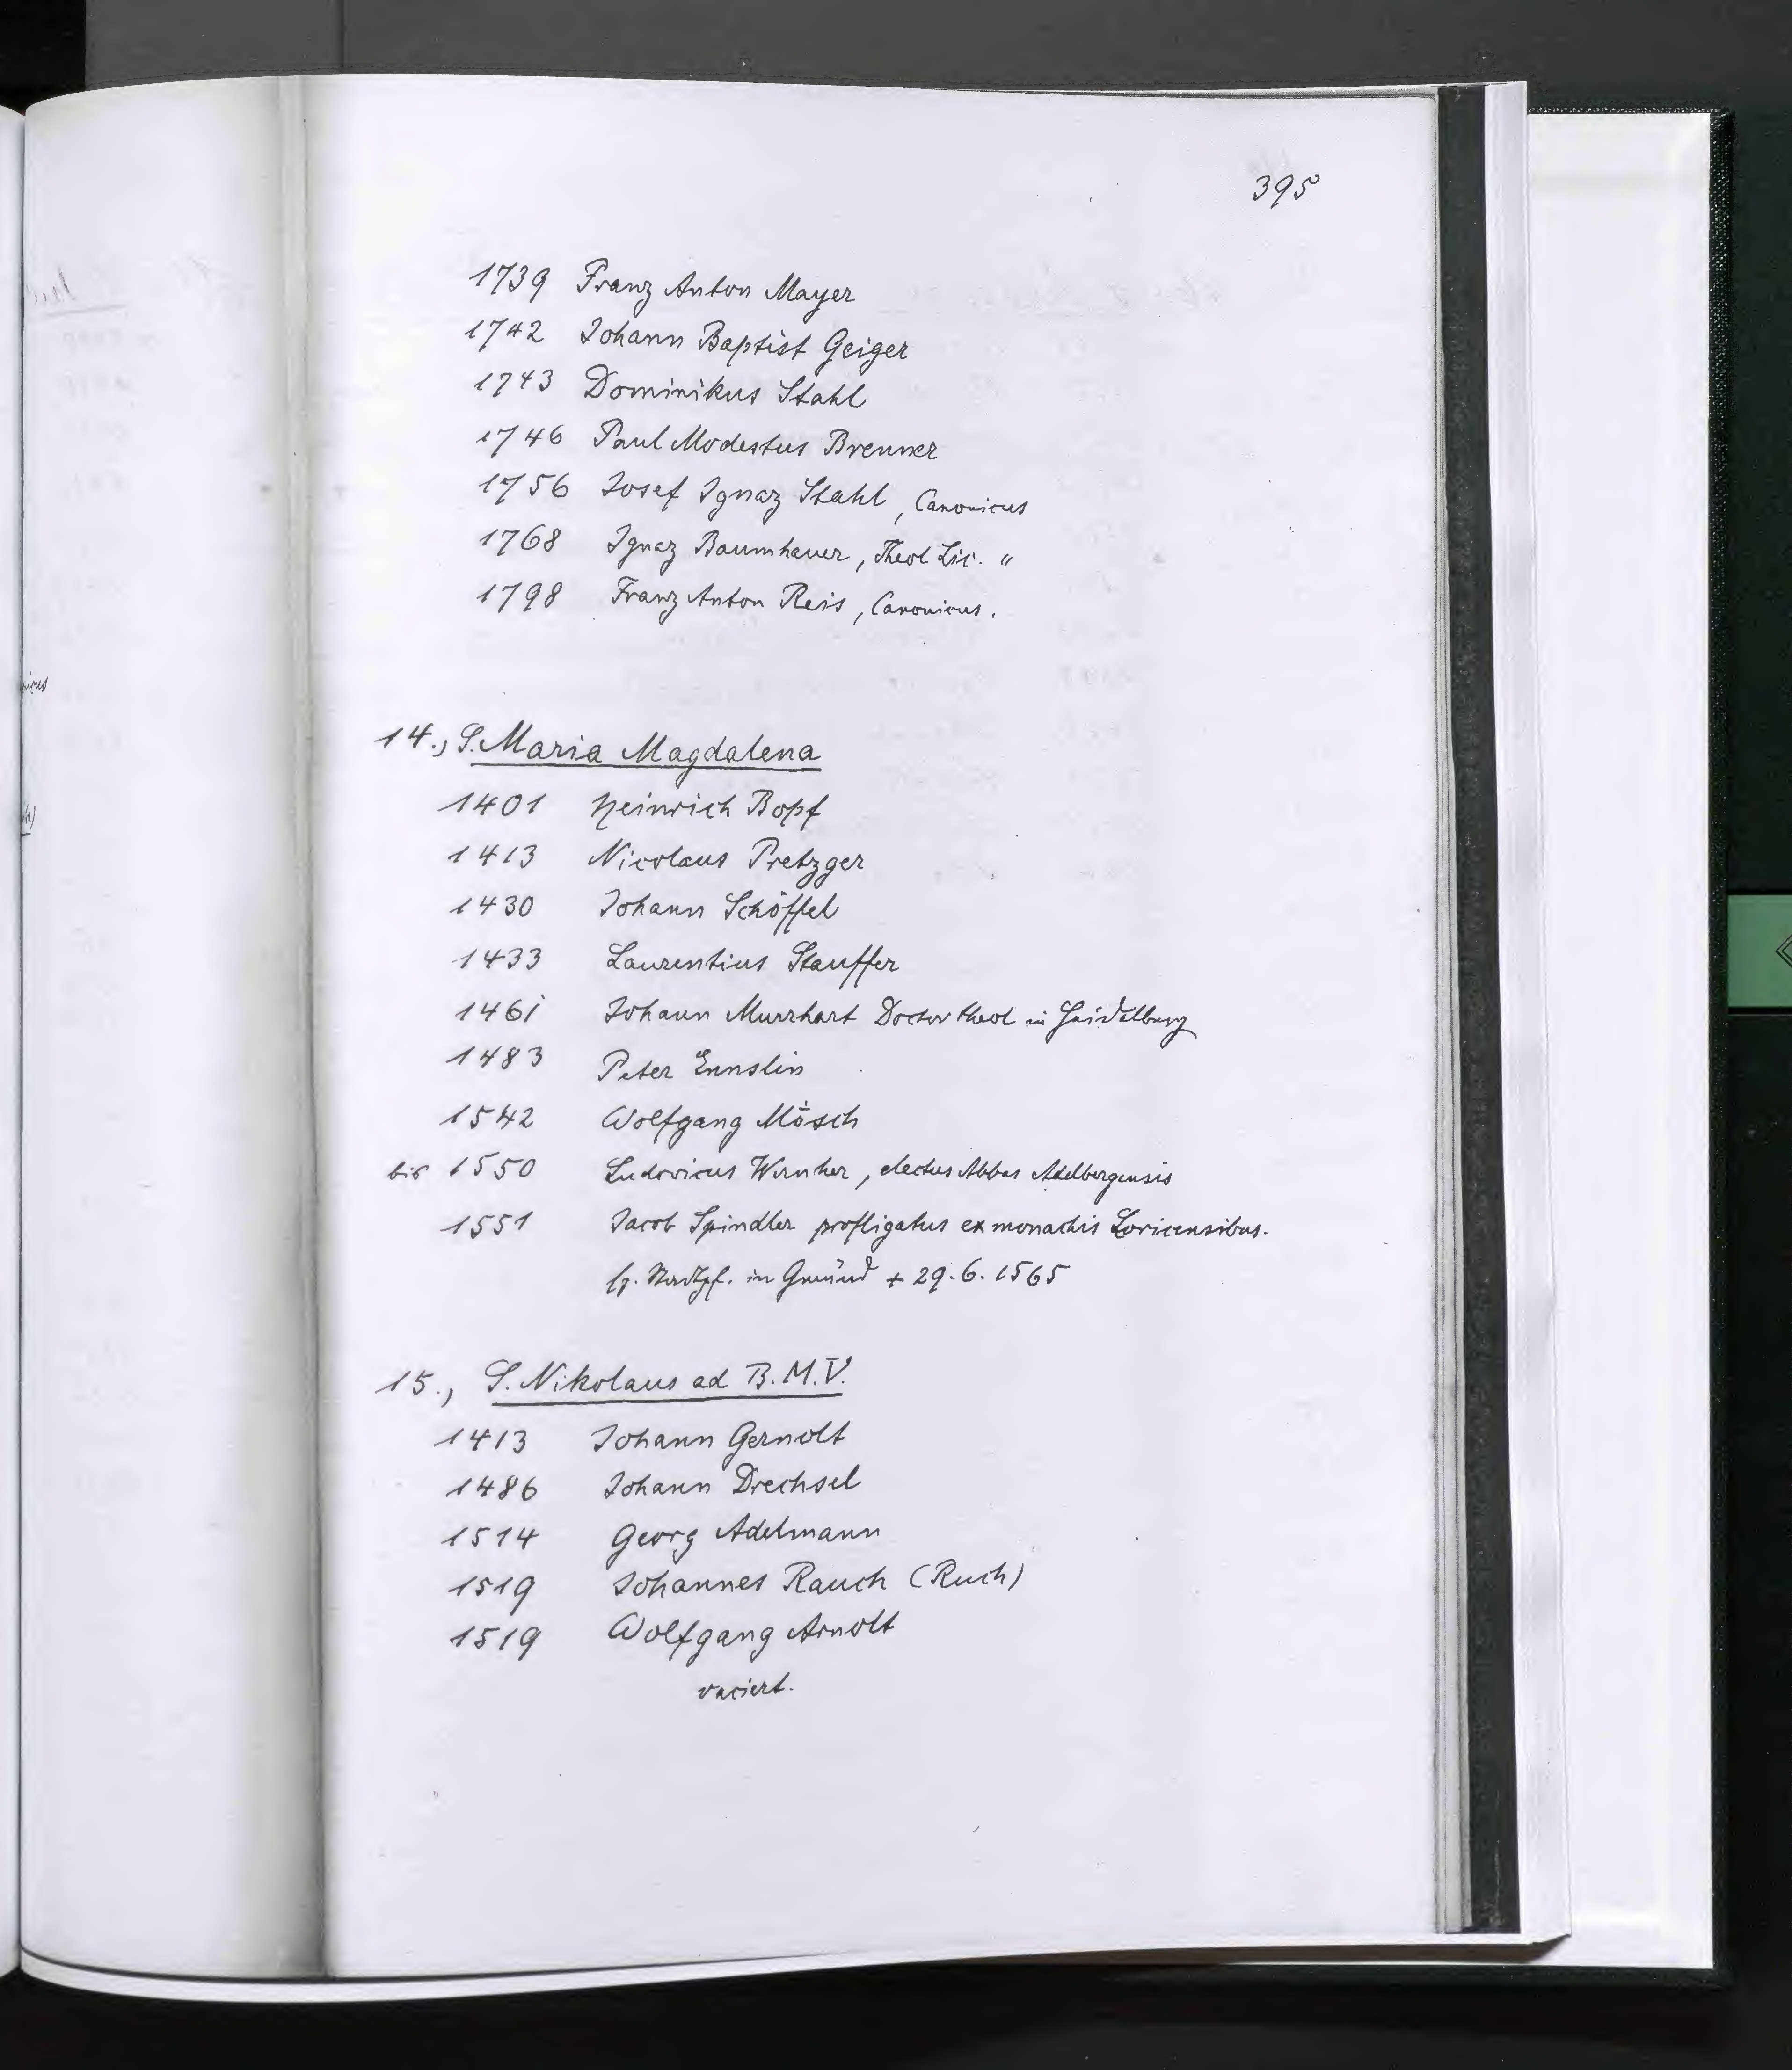 395
1739 Franz Anton Mayer
1742 Johann Baptist Geiger
1743 Dominikus Stahl
1746 Paul Modestus Brenner
1756 Josef Ignaz Stahl, Canonicus
1768 Ignaz Baumhauer, Theol Lic. "
1798 Franz Anton Reis, Canonicus.
14., S. Maria Magdalena
1401 Heinrich Bopf
1413 Nicolaus Pretzger
1430 Johann Schöffel
1433 Laurentius Stauffer
1461 Johann Murrhart Doctor theol in Heidelberg
1483 Peter Ennslin
1542 Wolfgang Mösch
bis 1550 Ludovicus Wernher, electus Abbas Adelbergensis
1551 Jacob Spindler profligatus ex monachis Loricensibus.
sp. Stadtpf. in Gmünd + 29.6.1565
15., S. Nikolaus ad B.M.V.
1413 Johann Gernolt
1486 Johann Drechsel
1514 Georg Adelmann
1519 Johannes Rauch (Ruch)
1519 Wolfgang Arnolt
vaciert.